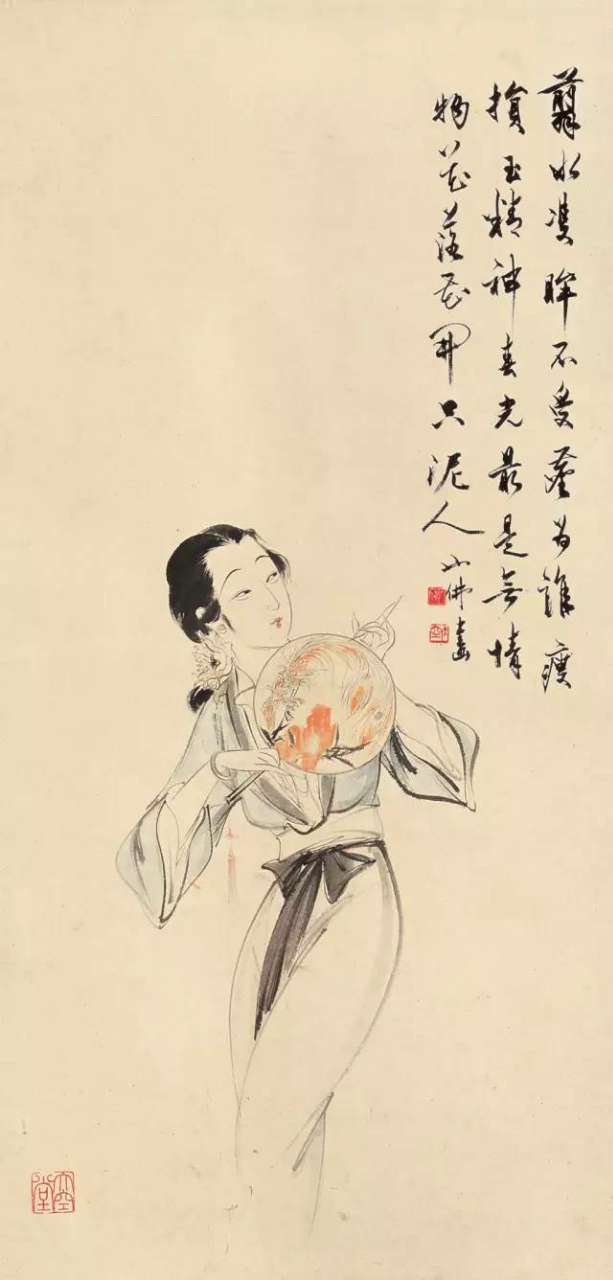 翦水雙眸不受塵為誰瘦
損玉精神春光最是無情
物花落花開只泥人
也佛畫
大空堂